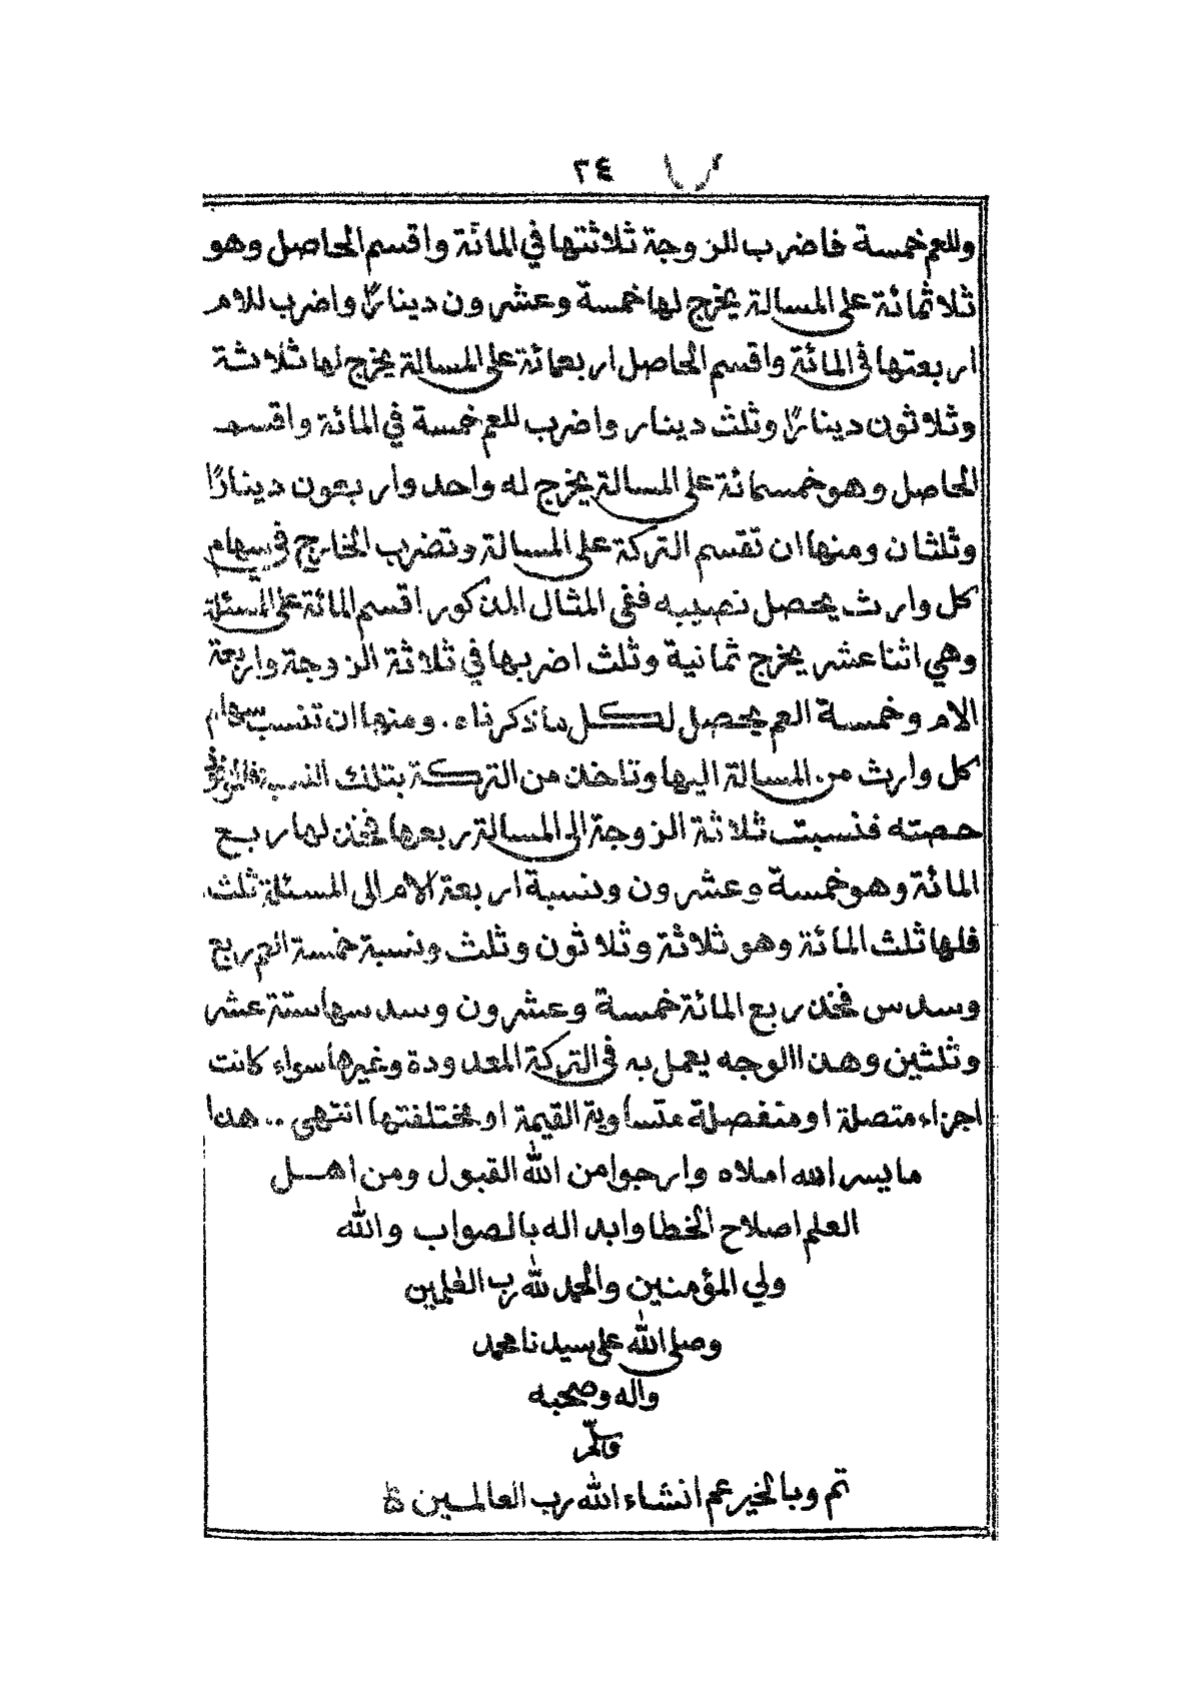 ٣٤
وللعم خمسة فاضرب للزوجة ثلاثتها في المائة واقسم الحاصل وهو
ثلاثمائة على المسالة يخرج لها خمسة وعشرون دينارًا واضرب للام
اربعتها في المائة واقسم الحاصل اربعمائة على المسالة يخرج لها ثلاثة
وثلاثون دينارًا وثلث دينار واضرب للعم خمسة في المائة واقسم
الحاصل وهو خمسمائة على المسالة يخرج له واحد واربعون دينارًا
وثلثان ومنها ان تقسم التركة على المسالة وتضرب الخارج في سهام
كل وارث يحصل نصيبه ففي المثال المذكور اقسم المائة على المسئلة
وهي اثنا عشر يخرج ثمانية وثلث اضربها في ثلاثة الزوجة واربعة
الام وخمسة العم يحصل لكل ماذكرناه. ومنها ان تنسب سهام
كل وارث من المسالة اليها وتاخذ من التركة بتلك النسبة
حصته فنسبت ثلاثة الزوجة الى المسالة ربعها فخذ لها ربع
المائة وهو خمسة وعشرون ونسبة اربعة الام الى المسئلة ثلث
فلها ثلث المائة وهو ثلاثة وثلاثون وثلث ونسبة خمسة العم ربع
وسدس فخذ ربع المائة خمسة وعشرون وسدسها ستة عشر
وثلثين وهذا الوجه يعمل به في التركة المعدودة وغيرها سواء كانت
اجزاء متصلة او منفصلة متساوية القيمة او مختلفتها انتهى .. هذا
ما يسر الله املاه وارجوا من الله القبول ومن اهل
العلم اصلاح الخطا وابداله بالصواب والله
ولي المؤمنين والحمد لله رب العلمين
وصلى الله على سيدنا محمد
واله وصحبه
وسلم
تم وبالخير عم انشاء الله رب العالمين